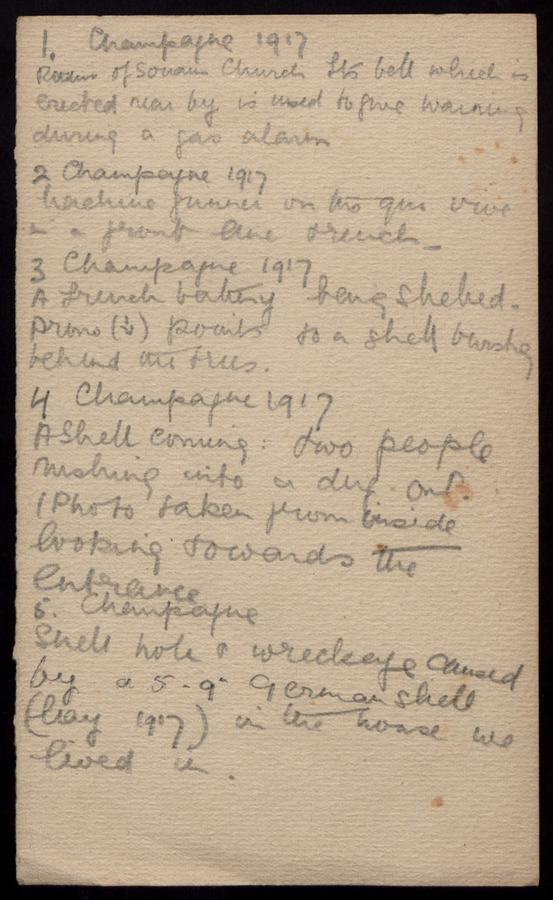 1. Champagne 1917
Ruins of Souain Church Its bell which is
erected near by is used to give warning
during a gas alarm
2 Champagne 1917
Machine gunner on the qui vive
in a front line trench_
3 Champagne 1917
A French battery being shelled.
Arrow (↓) points to a shell bursting
behind the trees.
4 Champagne 1917
A Shell coming: two people
rushing into a dug out.
(Photo taken from inside
looking towards the
Entrance
5. Champagne
Shell hole & wreckage caused
by a 5.9" German shell
(May 1917) in the house we
lived in.